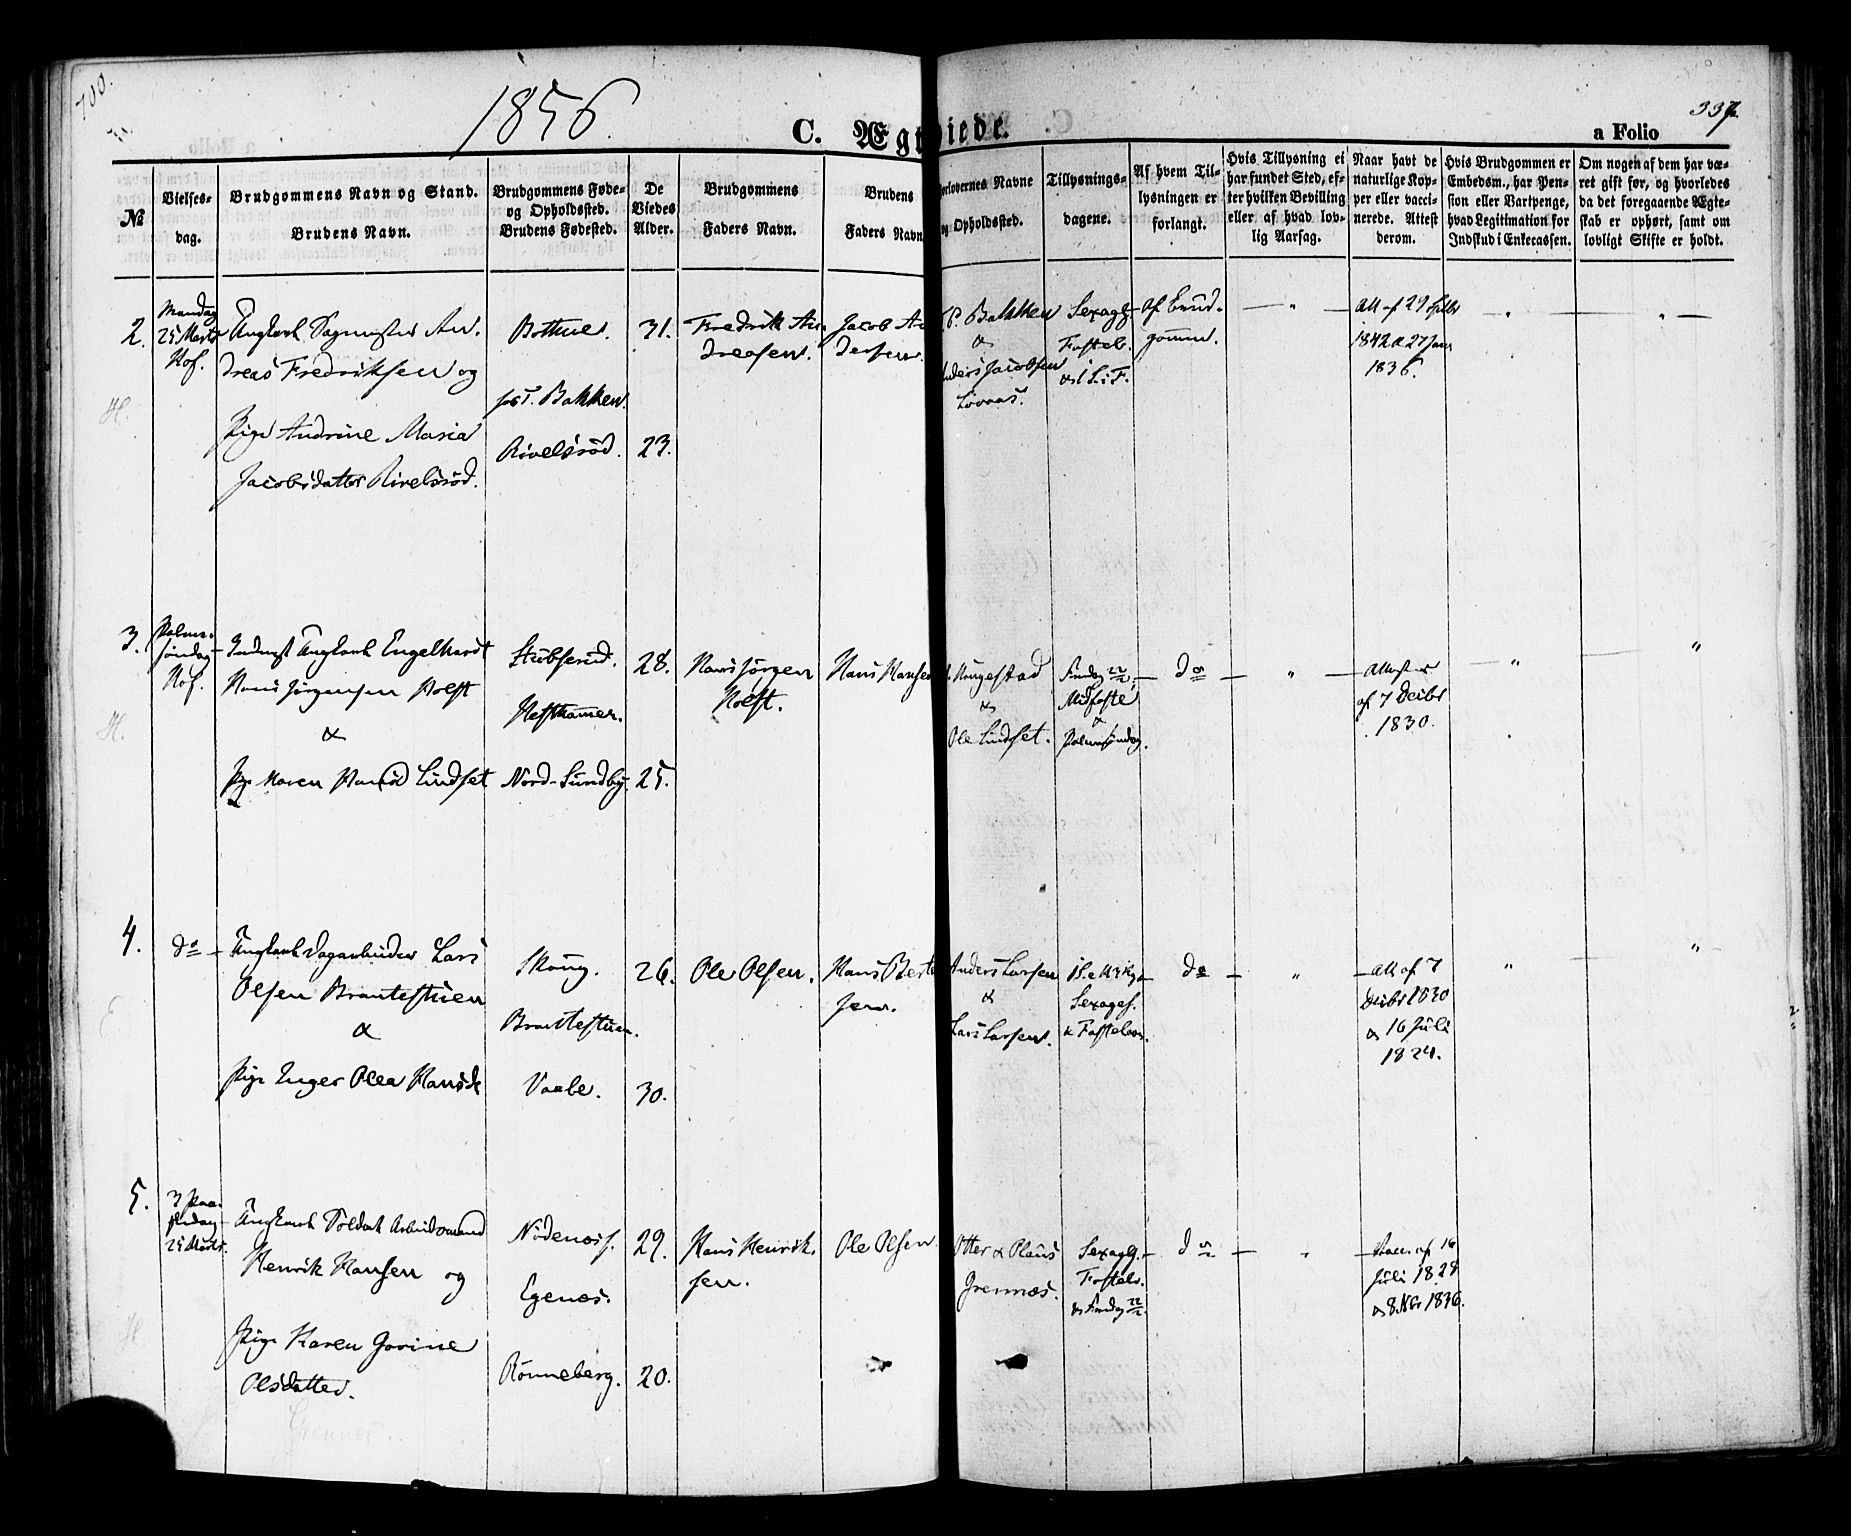 700.
1856.
C. Ægt viede.
a Folio
337
№
Vielses-
dag.
Brudgommens Navn og Stand.
Brudens Navn.
Brudgommens Føde-
og Opholdssted.
Brudens Fødested.
De
Viedes
Alder.
Brudgommens
Faders Navn.
Brudens
Faders Navn
orlovernes Navne
og Opholdssted.
Tillysnings-
dagene.
Af hvem Til-
lysningen er
forlangt.
Hvis Tillysning ei
har fundet Sted, ef-
ter hvilken Bevilling
eller af hvad lov-
lig Aarsag.
Naar havt de
naturlige Kop-
per eller vacci-
nerede. Attest
derom.
Hvis Brudgommen er
Embedsm., har Pen-
sion eller Vartpenge,
hvad Legitimation for
Indskud i Enkecassen.
Om nogen af dem har væ-
ret gift før, og hvorledes
da det foregaaende Ægte-
skab er ophørt, samt om
lovligt Skifte er holdt.
2.
Mandag
25 Marts
Hof.
H.
Ungkarl Sagmester An-
dreas Fredriksen og
Pige Andrine Maria
Jacobsdatter Rivelsrød.
Bottne.
Bakken.
Rivelsrød.
31.
23.
Fredrik An-
dreasen.
Jacob An
dersen.
P. Bakken
&
nders Jacobsen
Løvaas.
Sexag.
Fastel.
& 1 S. i F.
af Brud-
gommen.
"
Att af 29
1842 & 27 Jan
1836.
"
"
3.
Palme-
søndag
Hof.
H.
Ungkarl Engelhardt
Hans Jørgensen Holst
&
Pige Maren Hansd Lindset
Stubserud.
Hesthamer.
Nord-Sundby
28.
25.
Hans Jørgen
Holst.
Hans Hansen
Hougestad
&
Ole Lindset.
Midfaste
&
Palmesøndag.
do
"
Attester
af 7 Decbr
1830.
"
"
4.
do
Ungkarl Dagarbeider Lars
Olsen Brantestuen
&
Pige Inger Olea Hansd
Skoug.
Brantestuen.
Vaale.
26.
30.
Ole Olsen.
Hans Bert
sen.
Anders Larsen
&
Lars Larsen.
1 S. e H 3 Kg
Sexages.
& Fastelavn.
do
"
Att af 7
Decbr 1830
& 16 Juli
1824.
"
"
5.
3 Paa-
skedag
25 Marts.
H
Ungkarl Soldat Arbeidsmand
Henrik Hansen og
Pige Karen Gorine
Olsdatter.
Nødenæs.
Egenæs.
Rønneberg.
29.
20.
Hans Henrik-
sen.
Ole Olsen
Otter & Claus
Grennæs.
Sexag.
Fastelv.
do
"
af 16
Juli 1828
& 8 Nbr 1836.